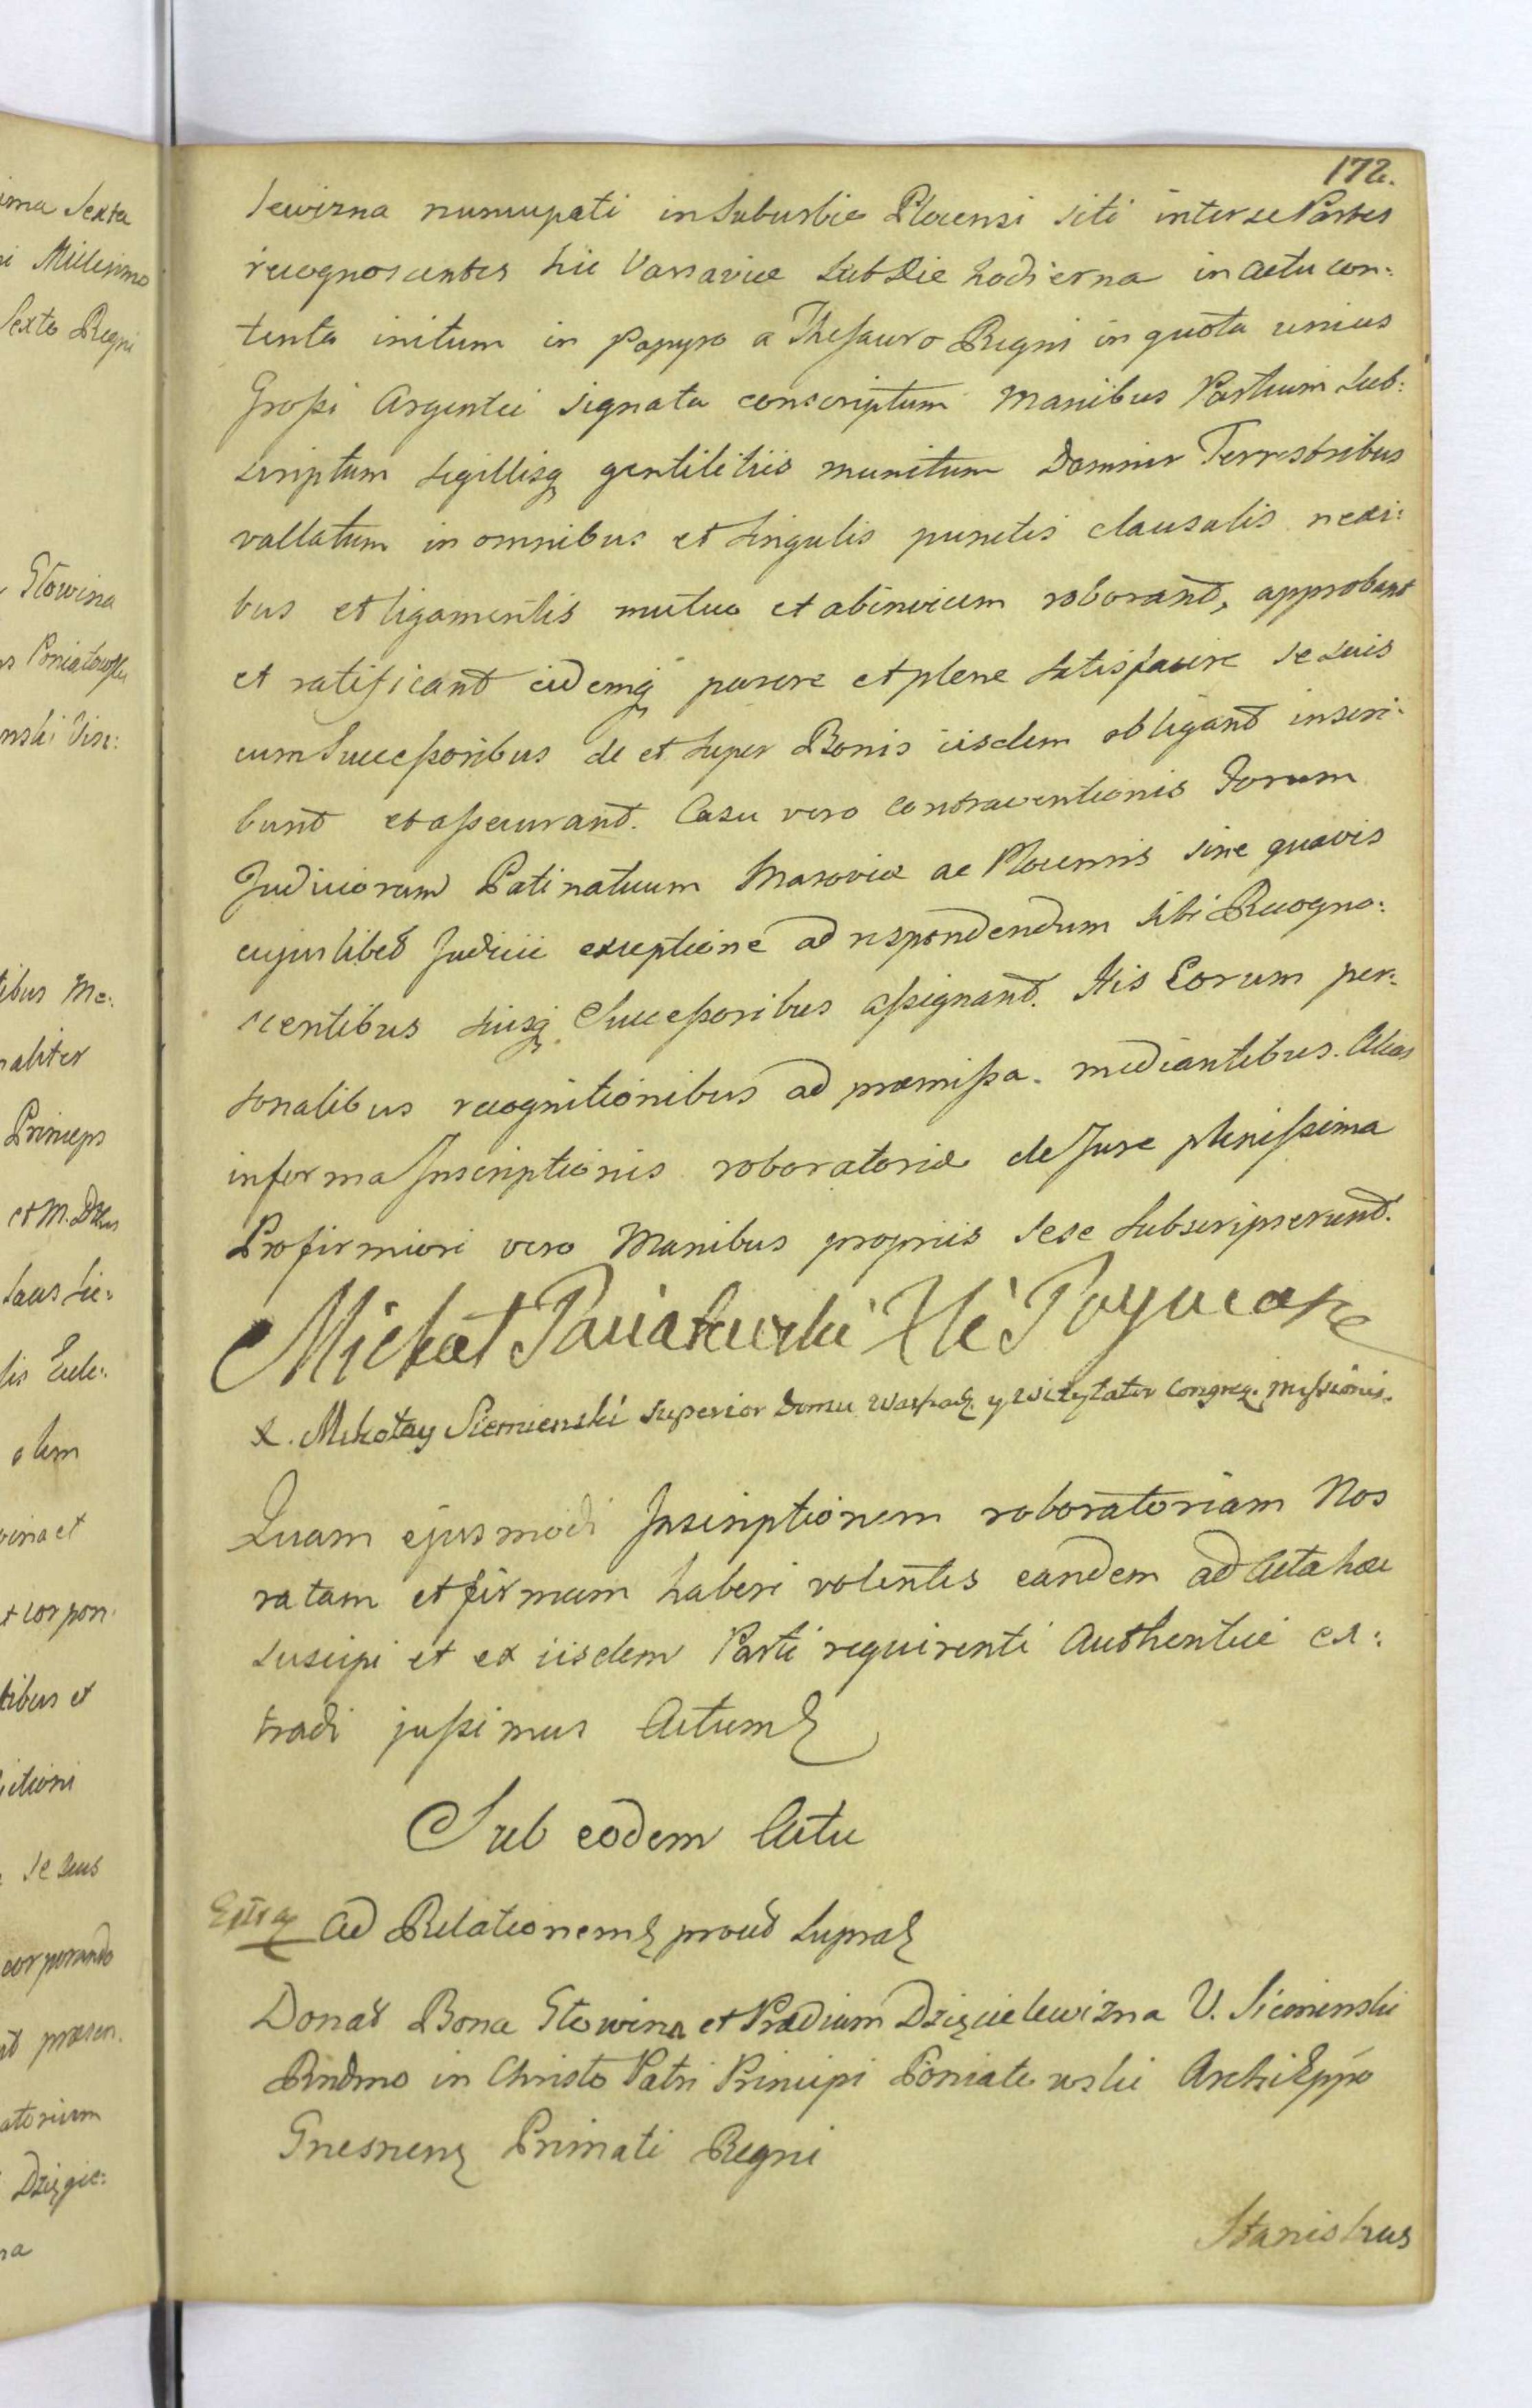 172.
lewizna nuncupati in Suburbio Plocensi siti inter se Partes
recognoscentes hic Varsaviae sub Die hodierna in actu con:
tenta initum in papyro a Thesauro Regni in quota unius
Grossi Argentei signata conscriptum Manibus Partium sub:
scriptum sigillisq gentilitiis munitum Damnis Terrestribus
vallatum in omnibus et singulis punctis clausulis nexi:
bus et ligamentis mutuo et abinvicem roborant, approbant
et ratificant eidemq parere et plene satisfacere se suis
cum Successoribus de et super Bonis iisdem obligant inscri:
bunt et assecurant. Casu vero contraventionis Forum
Judiciorum Palatinatuum Masoviae ac Plocensis sine quavis
cujuslibet Judicii exceptione ad respondendum sibi Recogno:
scentibus suisq Successoribus assignant. His Eorum per:
sonalibus recognitionibus ad praemissa mediantibus. Alias
in forma Inscriptionis roboratoriae de Jure plenissima
Pro firmiori vero Manibus propriis sese subscripserunt.
Michał Poniatowski Xże Prymas
X. Mikołay Siemienski Superior Domu Warszaw. y Wizytator Congreg. Missionis.
Quam ejusmodi Inscriptionem roboratoriam Nos
ratam et firmam haberi volentes eandem ad Acta haec
suscipi et ex iisdem Parti requirenti Authentice ex:
tradi jussimus Actum
Sub eodem Actu
Ad Relationem prout supra
Donat Bona Słowina et Praedium Dzięcielewizna V. Siemienski
Rndmo in Christo Patri Principi Poniatowski Archi Eppo
Gnesnen Primati Regni
Stanislaus